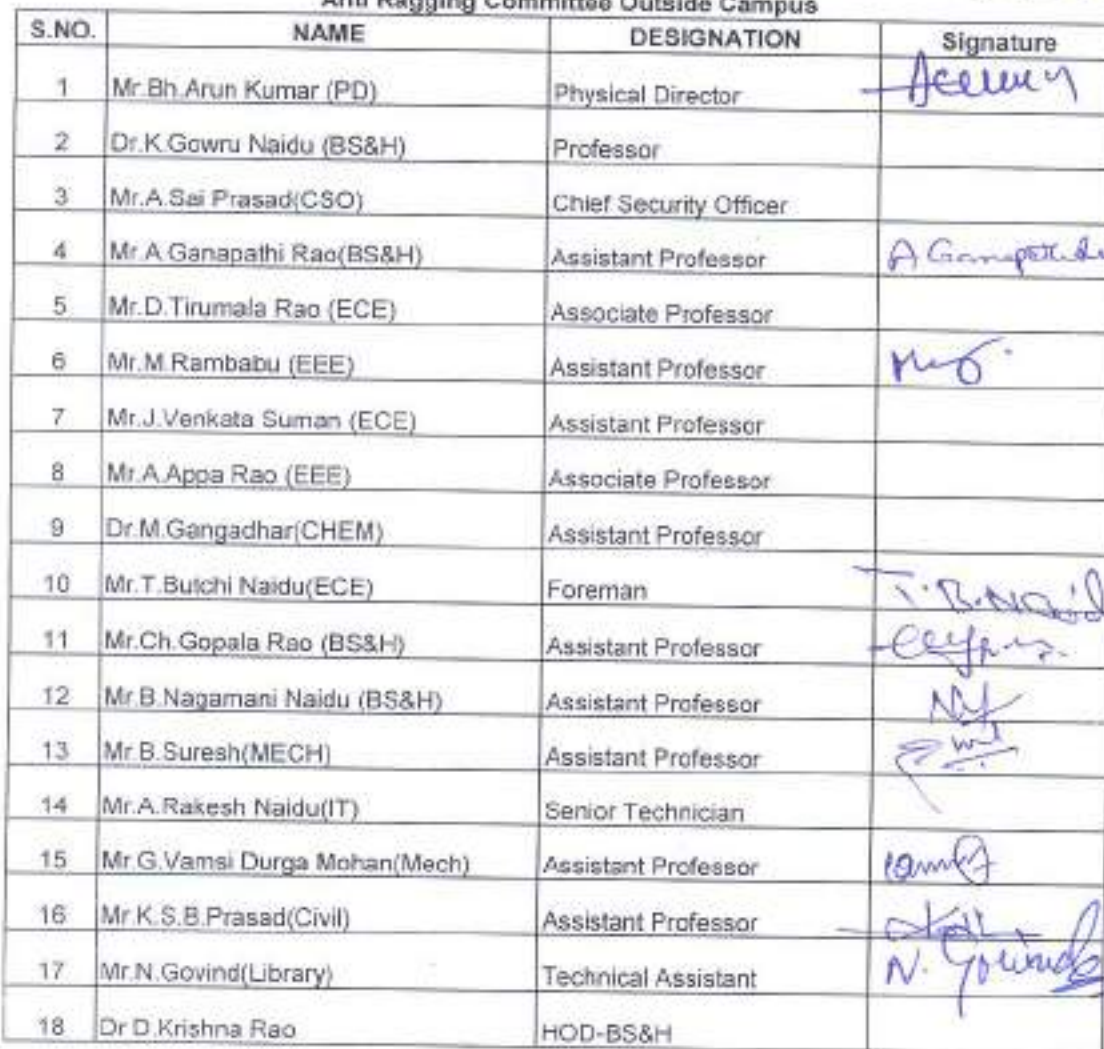 Anti Ragging Committee Outside Campus
S.NO. NAME DESIGNATION Signature
1 Mr.Bh.Arun Kumar (PD) Physical Director
2 Dr.K.Gowru Naidu (BS&H) Professor
3 Mr.A.Sai Prasad(CSO) Chief Security Officer
4 Mr.A.Ganapathi Rao(BS&H) Assistant Professor
5 Mr.D.Tirumala Rao (ECE) Associate Professor
6 Mr.M.Rambabu (EEE) Assistant Professor
7 Mr.J.Venkata Suman (ECE) Assistant Professor
8 Mr.A.Appa Rao (EEE) Associate Professor
9 Dr.M.Gangadhar(CHEM) Assistant Professor
10 Mr.T.Butchi Naidu(ECE) Foreman T.B.Naid
11 Mr.Ch.Gopala Rao (BS&H) Assistant Professor
12 Mr.B.Nagamani Naidu (BS&H) Assistant Professor
13 Mr.B.Suresh(MECH) Assistant Professor
14 Mr.A.Rakesh Naidu(IT) Senior Technician
15 Mr.G.Vamsi Durga Mohan(Mech) Assistant Professor
16 Mr.K.S.B.Prasad(Civil) Assistant Professor
17 Mr.N.Govind(Library) Technical Assistant N.
18 Dr D.Krishna Rao HOD-BS&H